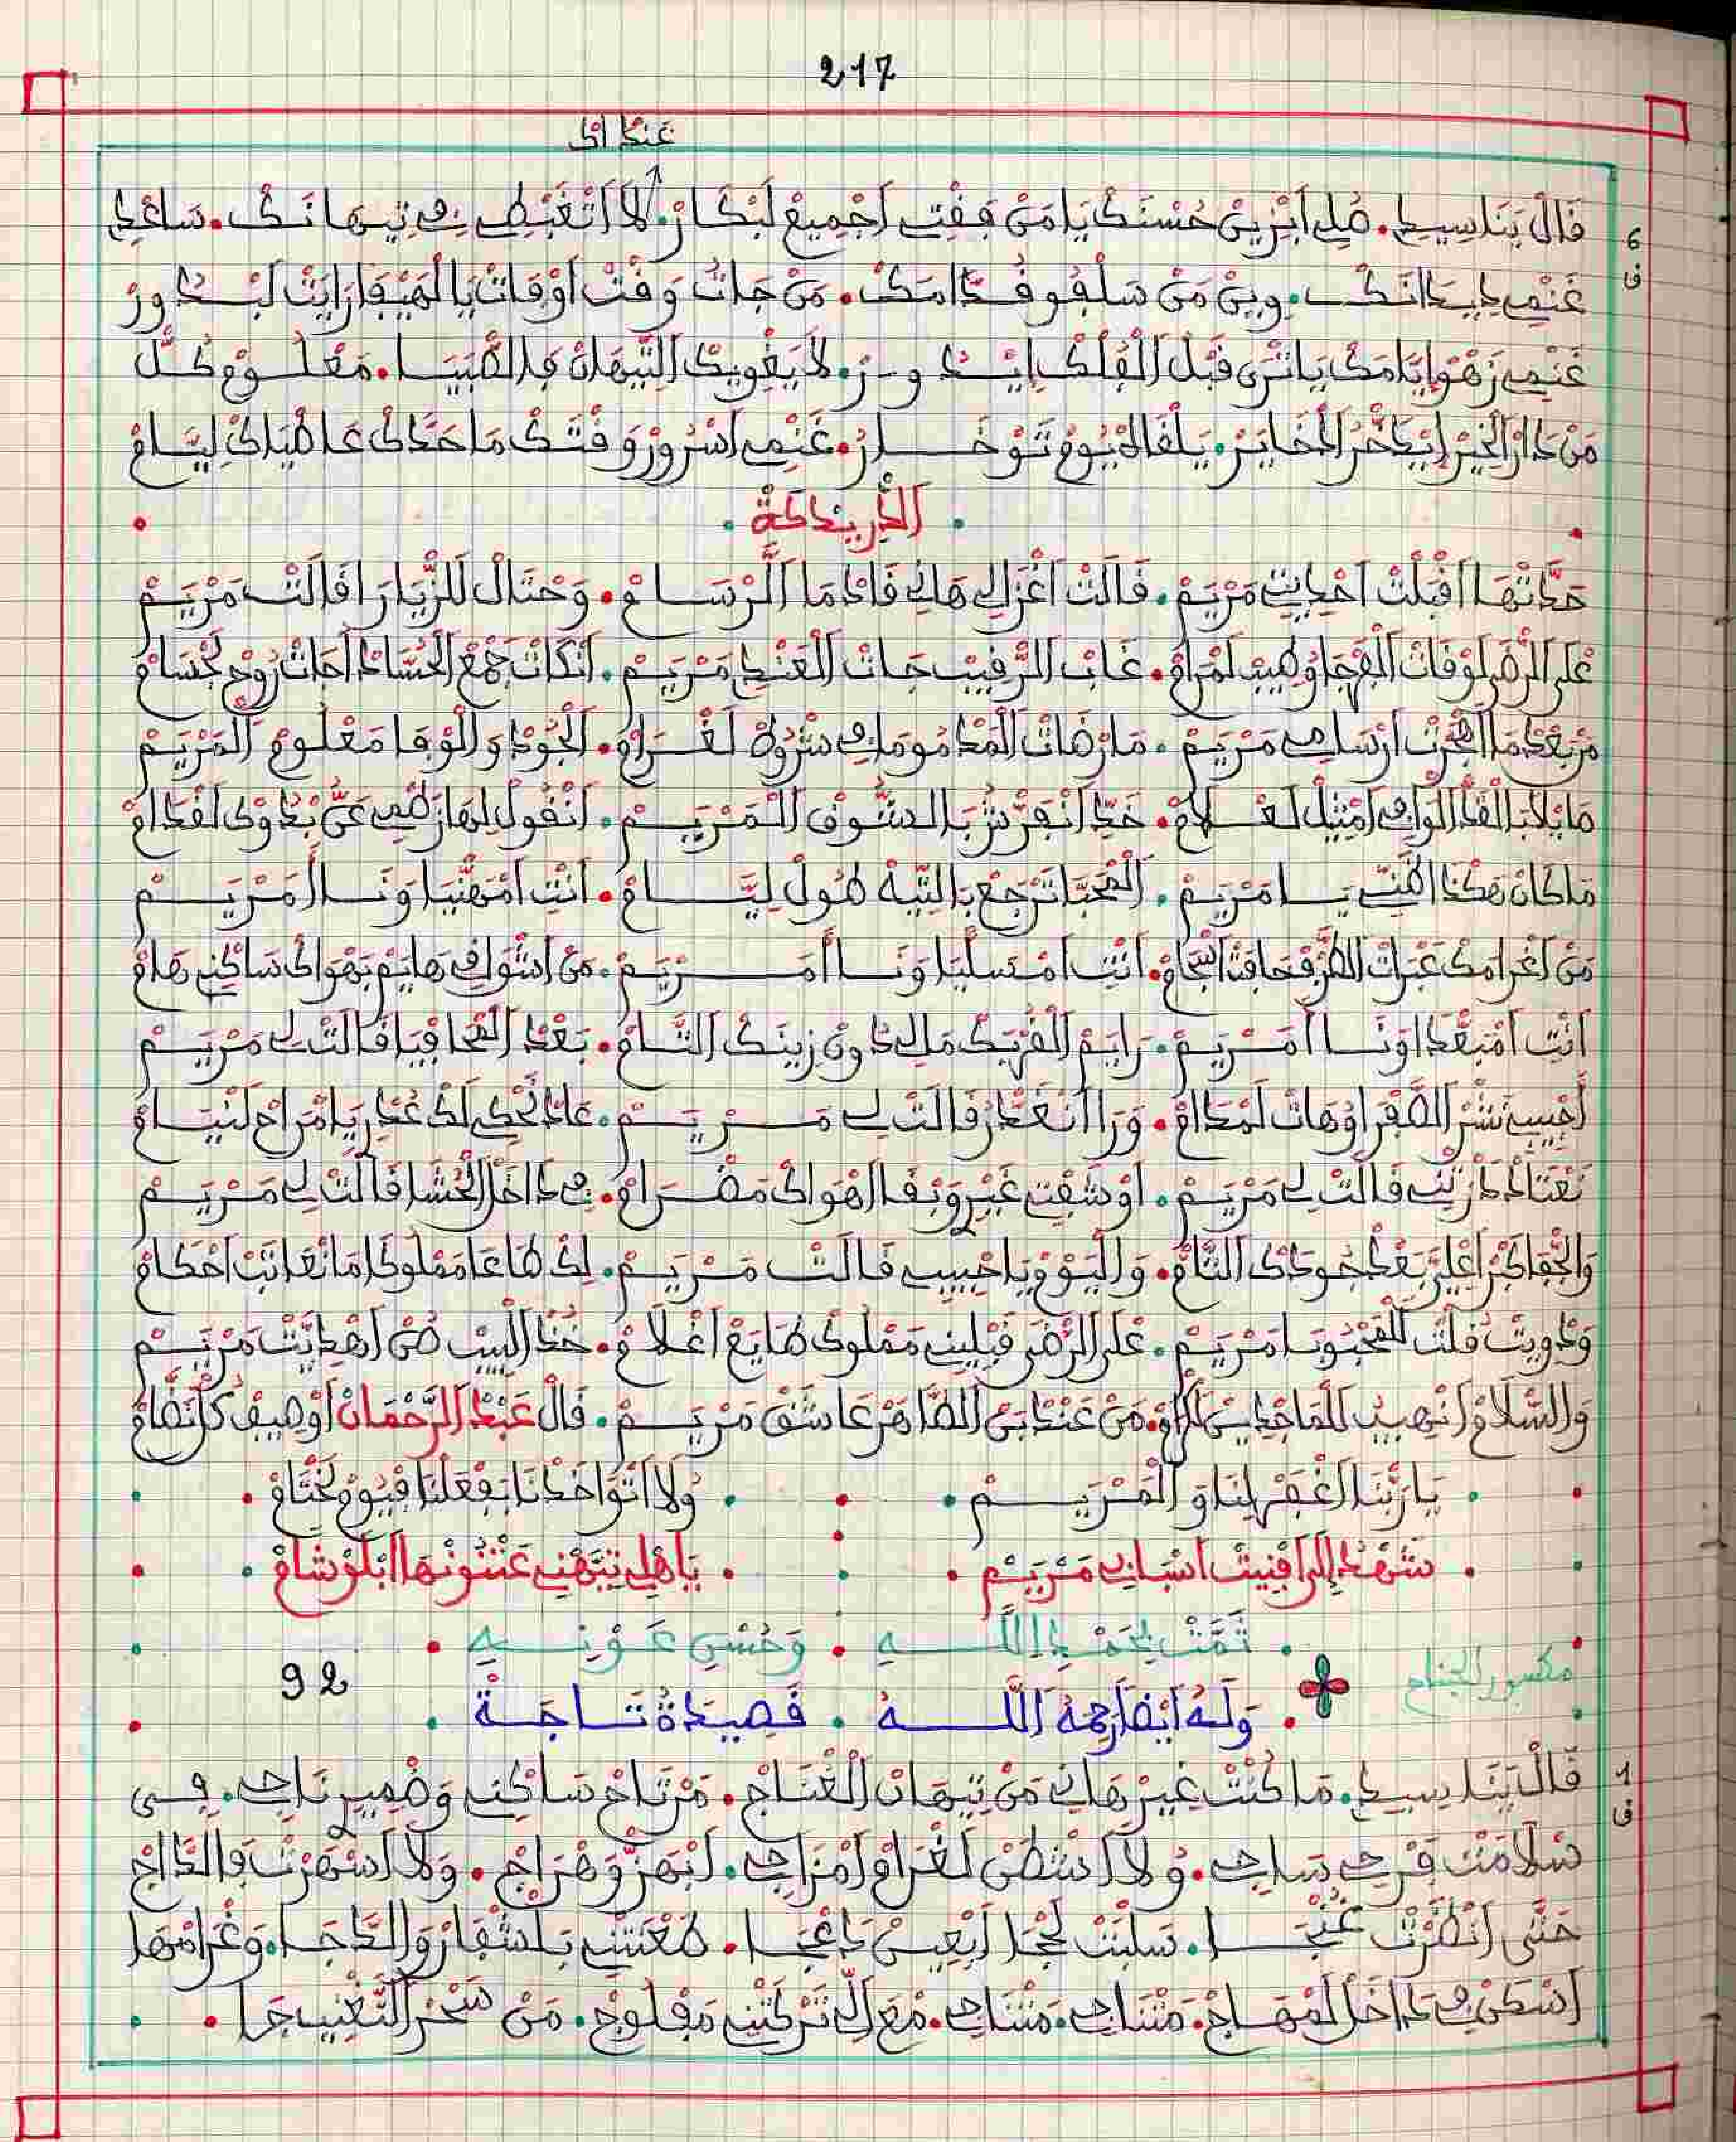 217
عَنْدْ اكْ
6 ف
قَالْ يَنَاسِيدِي. صُلِ ابْزِينْ حُسْنَكْ يَا مَنْ فِقْتِ اجْمِيعْ لَبْكَارْ. لَا اتْغَبْطِي فِي تِيهَانَكْ. سَاعْدِ
غَنْمِي. وِينْ مَنْ سَلْفُو قُدَّامَكْ. مَنْ جَاتُ وَقْتْ اوْقَاتْ يَا الْهِيفَا رَايَتْ لَبْدُورْ
غَنْمِي زَهْوْ يَّامَكْ يَا تْرَى قَبْلْ الْفَلْكْ ايْدُورْ. لَا يَغْوِيكْ التِّيهَانْ فَالصَّبْيَا. مَعْلُومْ كُلّْ
مَنْ دَارْ الْخِيرْ ايْدَخَّرْ الدْخَايَرْ. يَلْقَاهْ يُومْ تَوْخَارْ. غَنْمِي اسْرُورْ وَقْتَكْ مَا حَدَّكْ عَاطْيَاكْ لِيَّامْ
الدْرِيدَكَةْ
حَدَّتْهَا اقْبَلْتْ احْدِيتِي مَرْيَمْ. قَالَتْ اغْزَالِي هَانِي قَادْمَا الْرْسَامْ. وَحْتَالْ لَلزْيَارَا قَالَتْ مَرْيَمْ
عْلَى الرْضَى لَوْفَاتْ الْفَرْجَا وُطِيبْ لَمْرَامْ. غَابْ الرْقِيبْ جَاتْ الْعَنْدِي مَرْيَمْ. انْكَاتْ جَمْعْ الْحُسَّادْ اجَاتْ رُوحْ لَجْسَامْ
مَنْ بَعْدْمَا الْهَجْرَتْ ارْسَامِي مَرْيَمْ. مَا رْضَاتْ الْمَدْمُومَا فِي شْرُوطْ لَغْرَامْ. الْجُودْ وَالْوْفَا مَعْلُومْ الْمَرْيَمْ
مَايْلَا بَالْقَدّْ الْوَافِي امْثِيلْ لَعْلَامْ. خَدِّ انْفَرْشُ بَالشُّوقْ الْمَرْيَمْ. انْقُولْ لِهَا زَطْمِي عَنُّ بْدُوكْ لَقْدَامْ
مَا كَانْ هَكْدَا ظَنِّي يَا مَرْيَمْ. الْمْحَبَّا تَرْجَعْ بَالتِّيهْ طُولْ لِيَّامْ. انْتِ امْهَنْيَا وَنَا امَرْيَمْ
مَنْ اغْرَامَكْ عَبْرَاتْ الطَّرْفْ جَافْتْ انْجَامْ. انْتِ امْسَلْيَا وَنَا امَرْيَمْ. مَنْ اشْوَاقِي هَايَمْ بَهْوَاكْ سَاكْنِي هَامْ
انْتِ امْبَعْدَا وَنَا امَرْيَمْ. رَايَمْ الْقُرْبَكْ مَالِي دُونْ زِينَكْ التَّامْ. بَعْدْ الْمْحَافْيَا قَالَتْ لِي مَرْيَمْ
احْبِيبِي نَشْرْ الصَّفْرَا وُهَاتْ لَمْدَامْ. وَرَا انْغَدَّرْ قَالَتْ لِي مَرْيَمْ. عَادْ نَحْكِي لَكْ عُدْرِي يَا مْرَاحْ لَنْيَامْ
نَعْتَادْ دَارْتِي قَالَتْ لِي مَرْيَمْ. اوْ شَفْتِ غَيْرِ وَبْقَا اهْوَاكْ مَضْرَامْ. فِي دَاخْلْ الْحْشَا قَالَتْ لِي مَرْيَمْ
وَالْجْفَا كْبَرْ اعْلِيَّ بَعْدْ جُودَكْ التَّامْ. وَالْيُومْ يَا حْبِيبِي قَالَتْ مَرْيَمْ. لِكْ طَاعَا مَمْلُوكَا مَا نْعَانَدْ احْكَامْ
وَدْوِيتْ قُلْتْ لَلْمَحْبُوبَا مَرْيَمْ. عْلَى الرْضَى قَبْلِينِي مَمْلُوكْ طَايَعْ اغْلَامْ. خُدْ البِيبْ طُرْ اهْدِيَّتْ مَرْيَمْ
وَالسْلَامْ انْهِيبُ لَلْمَاجْدِينْ لَكْرَامْ. مَنْ عَنْدْ بَنْ الطَّاهَرْ عَاشَقْ مَرْيَمْ. قَالْ عَبْدْ الرَّحْمَانْ اوْصِيفْ كُلّْ نَظَّامْ
يَا رَبَّنَا اغْفَرْ لِينَا وَالْمَرْيَمْ. وُلَا اتْوَاخَدْنَا بَفْعَلْنَا فْيُومْ لَخْتَامْ
شَهْدْ الرَافْنِيتْ اسْبَابِي مَرْيَمْ. يَاهْلِي تَيَّهْنِي عَنْنُونْهَا ابْلَوْشَامْ
تَمَّتْ بِحَمْدِ اللَّهِ وَحُسْنِ عَوْنِهِ
92
مكسور الجناح
وَلَهُ أَيْضًا رَحِمَهُ اللَّهُ. قَصِيدَةُ تَاجَةْ
1 ف
قَالْ يَنَاسِيدِي. مَا كُنْتْ غِيرْ هَانِي مَنْ تِيهَانْ الْغْنَاجْ. مَرْتَاحْ سَاكْنِي وَضْمِيرِي نَاجِي. فِي
سَلَامْتْ فَرْجِي سَاجِي. وُلَا اشْطَنْ لَغْرَامْ امْزَاجِي. ابْهَزّْ وَهْرَاجْ. وَلَا اسْهَرْتْ فَالدَّاجْ
حَتَّى انْظَرْتْ غُنْجَا. سَلْبَتْ لَحْجَا ابْعِينْ دَاعْجَا. طَعْنَتْنِي بَلَشْفَارْ وَالدَّاجَا. وَغْرَامْهَا
اسْكَنْ فِي دَاخَلْ لَمْهَاجْ. مَتْنَاجِي. مَتْنَاجِي. مْعَ الِّي تَرْكَتْنِي مَفْلُوجْ. مَنْ سْحَرْ التَّغْنِيجَا